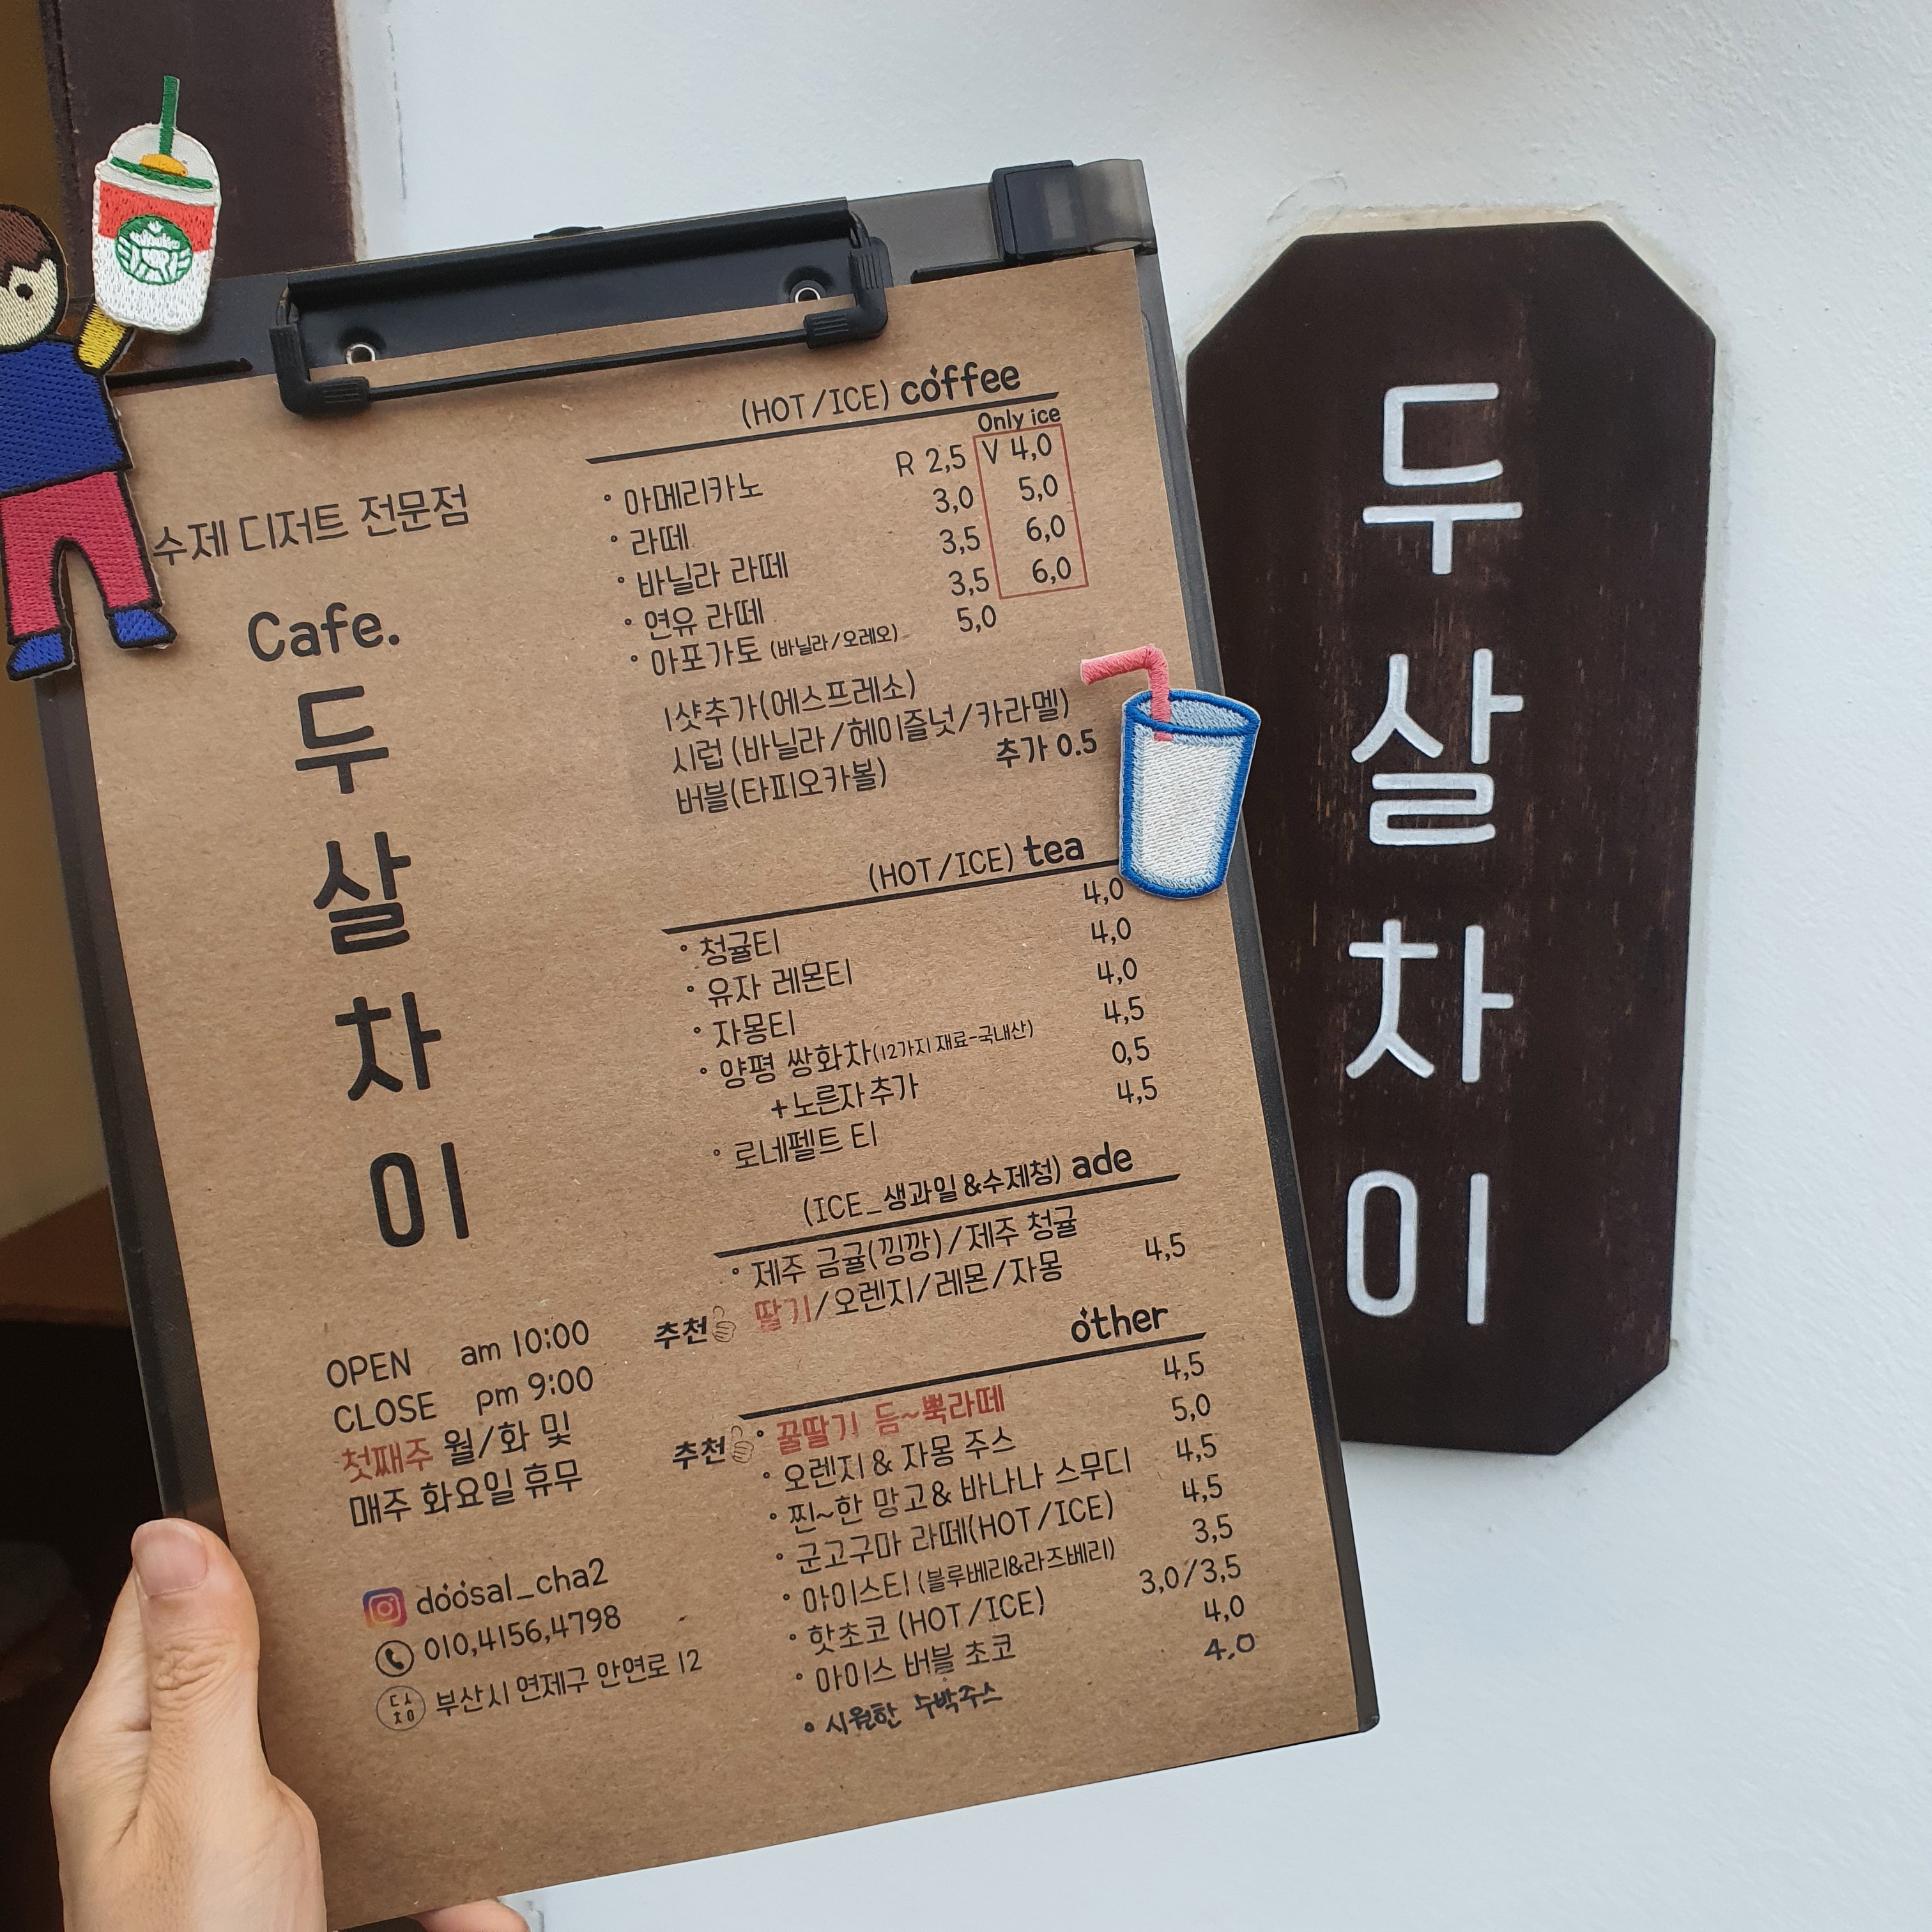 수제 디저트 전문점
Cafe.
두
살
차
이
OPEN am 10:00
CLOSE pm 9:00
첫째주 월/화 및
매주 화요일 휴무
doosal_cha2
010,4156,4798
ㄷㅅ
ㅊㅇ
부산시 연제구 안연로 12
(HOT/ICE) coffee
Only ice
• 아메리카노 R 2,5 V 4,0
• 라떼 3,0 5,0
• 바닐라 라떼 3,5 6,0
• 연유 라떼 3,5 6,0
• 아포가토 (바닐라/오레오) 5,0
1샷추가(에스프레소)
시럽 (바닐라/헤이즐넛/카라멜)
버블(타피오카볼) 추가 0.5
(HOT/ICE) tea
• 청귤티 4,0
• 유자 레몬티 4,0
• 자몽티 4,0
• 양평 쌍화차(12가지 재료-국내산) 4,5
+노른자추가 0,5
• 로네펠트 티 4,5
(ICE_생과일&수제청) ade
• 제주 금귤(낑깡)/제주 청귤
추천 딸기/오렌지/레몬/자몽 4,5
other
추천 • 꿀딸기 듬~뿍라떼 4,5
• 오렌지 & 자몽 주스 5,0
• 찐~한 망고& 바나나 스무디 4,5
• 군고구마 라떼(HOT/ICE) 4,5
• 아이스티 (블루베리&라즈베리) 3,5
• 핫초코 (HOT/ICE) 3,0/3,5
• 아이스 버블 초코 4,0
• 시원한 수박주스 4.0
두
살
차
이